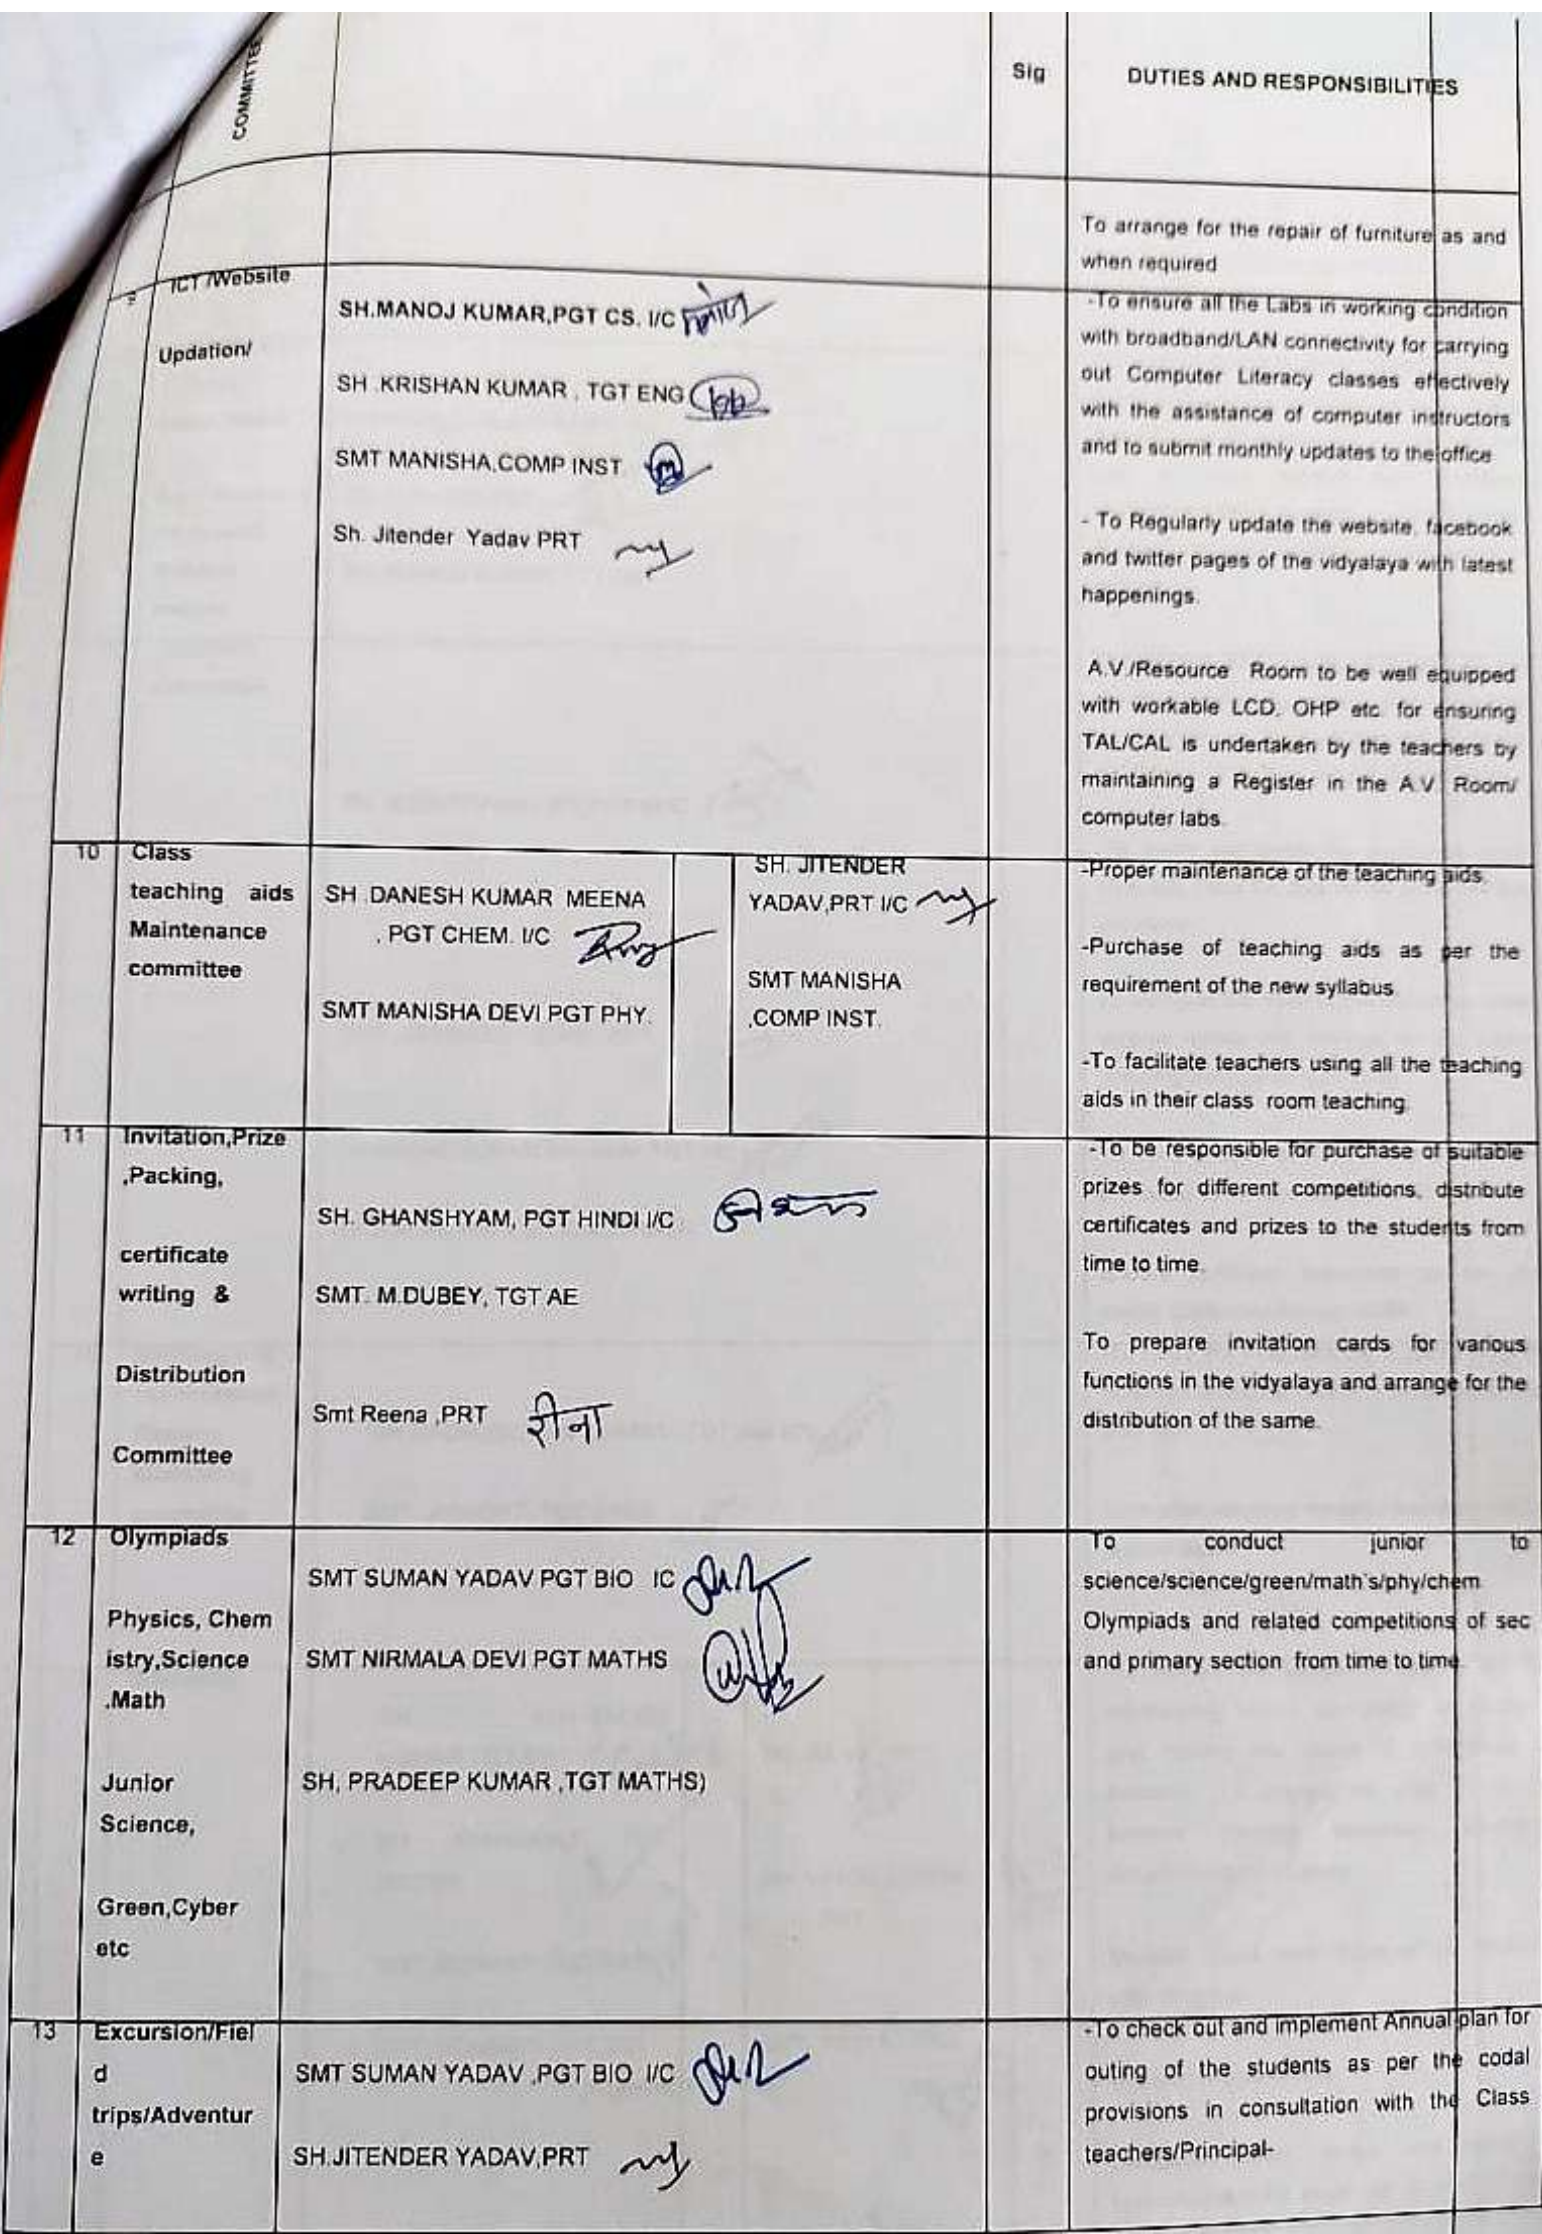 COMMITTEE
Sig
DUTIES AND RESPONSIBILITIES
To arrange for the repair of furniture as and
when required
9
ICT /Website
Updation/
SH.MANOJ KUMAR,PGT CS. I/C
SH .KRISHAN KUMAR , TGT ENG
SMT MANISHA,COMP INST
Sh. Jitender Yadav PRT
-To ensure all the Labs in working condition
with broadband/LAN connectivity for carrying
out Computer Literacy classes effectively
with the assistance of computer instructors
and to submit monthly updates to the office
- To Regularly update the website, facebook
and twitter pages of the vidyalaya with latest
happenings.
A.V./Resource Room to be well equipped
with workable LCD, OHP etc. for ensuring
TAL/CAL is undertaken by the teachers by
maintaining a Register in the A.V Room/
computer labs.
10
Class
teaching aids
Maintenance
committee
SH .DANESH KUMAR MEENA
, PGT CHEM. I/C
SMT MANISHA DEVI PGT PHY.
SH. JITENDER
YADAV,PRT I/C
SMT MANISHA
,COMP INST.
-Proper maintenance of the teaching aids.
-Purchase of teaching aids as per the
requirement of the new syllabus.
-To facilitate teachers using all the teaching
aids in their class room teaching.
11
Invitation,Prize
,Packing,
certificate
writing &
Distribution
Committee
SH. GHANSHYAM, PGT HINDI I/C
SMT. M.DUBEY, TGT AE
Smt Reena ,PRT रीना
-To be responsible for purchase of suitable
prizes for different competitions, distribute
certificates and prizes to the students from
time to time.
To prepare invitation cards for various
functions in the vidyalaya and arrange for the
distribution of the same.
12
Olympiads
Physics, Chem
istry,Science
,Math
Junior
Science,
Green,Cyber
etc
SMT SUMAN YADAV PGT BIO IC
SMT NIRMALA DEVI PGT MATHS
SH, PRADEEP KUMAR ,TGT MATHS)
To conduct junior to
science/science/green/math's/phy/chem
Olympiads and related competitions of sec
and primary section from time to time.
13
Excursion/Fiel
d
trips/Adventur
e
SMT SUMAN YADAV ,PGT BIO I/C
SH.JITENDER YADAV,PRT
-To check out and implement Annual plan for
outing of the students as per the codal
provisions in consultation with the Class
teachers/Principal-